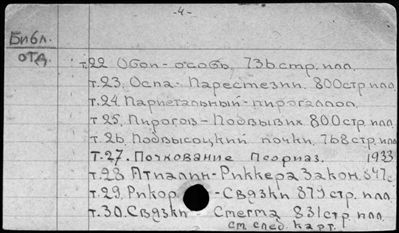 -4-
Библ.
отд.
т.22 Обои - особь, 736 стр. илл.
т.23. Оспа - Парестезии. 800 стр илл.
т.24. Париетальный - пирогаллол
т.25. Пирогов - Подвывих 800 стр. илл.
т.26. Подвысоцкий почки, 768 стр. илл
т.27. Почкование Псориаз. 1933
т.28 Птиалин - Риккера Закон. 847с.
т.29. Рикор - Связки 879 стр. илл.
т.30. Связки - Смегма 831 стр илл
см след. карт.